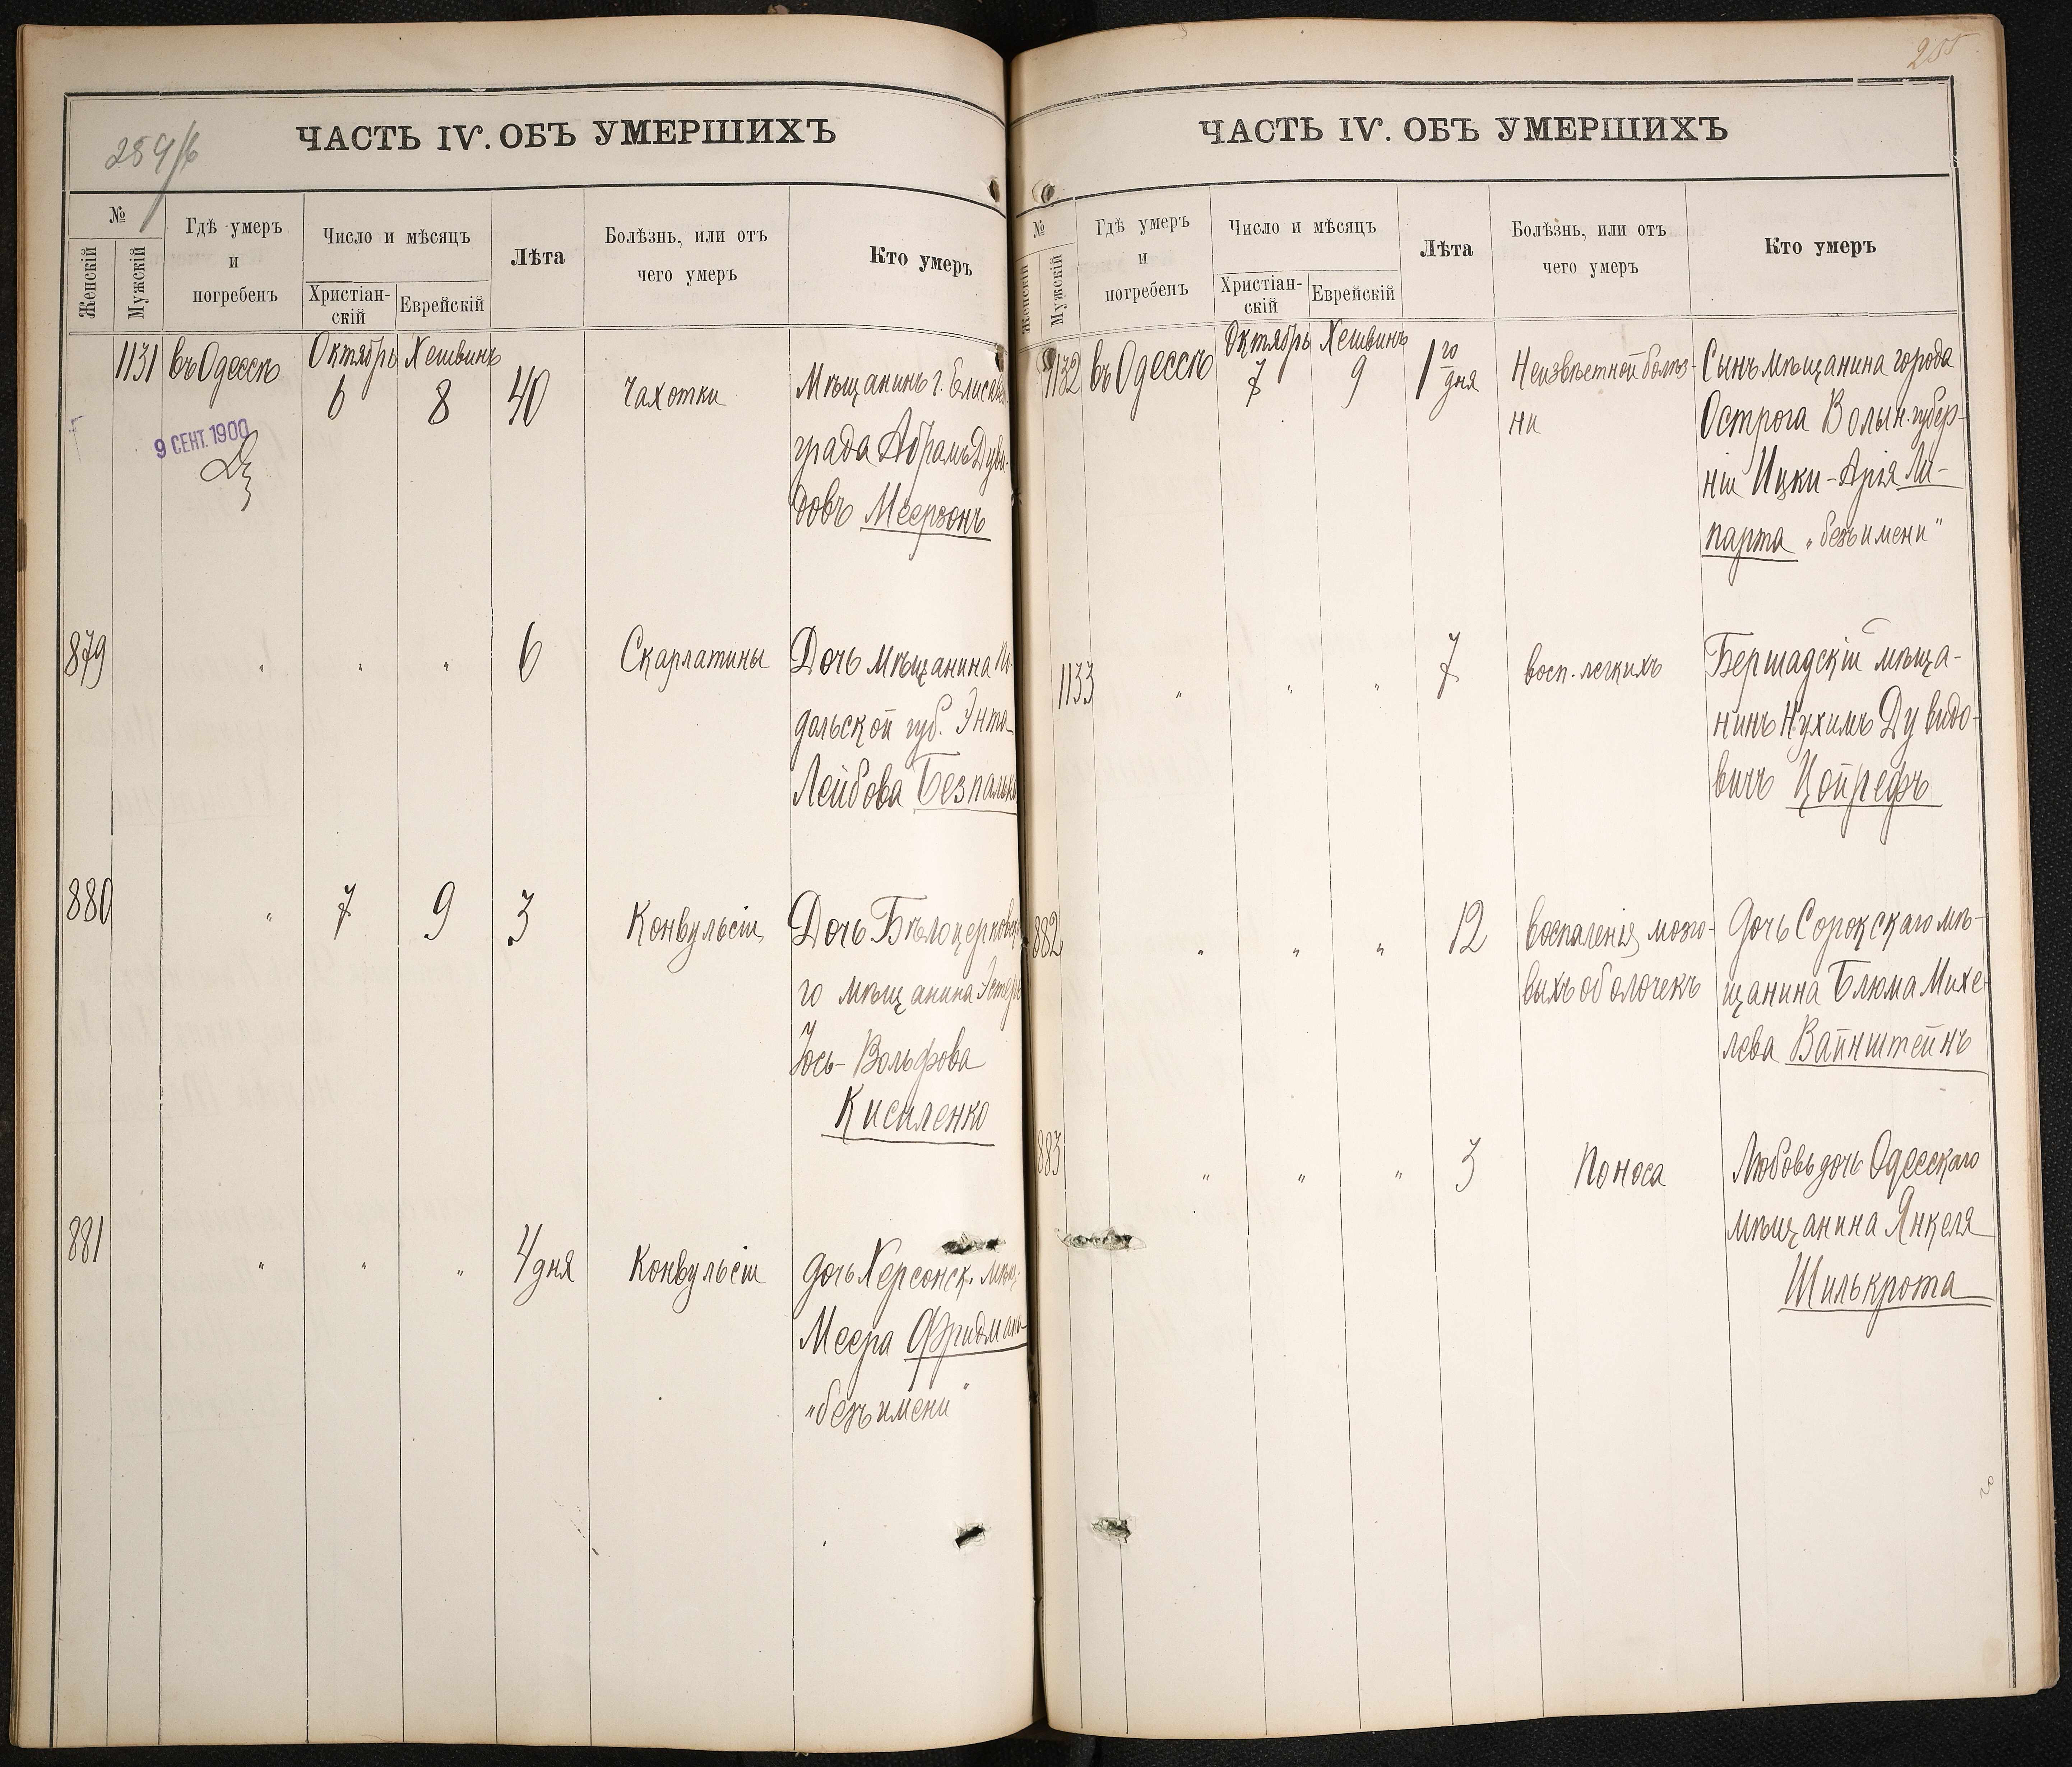 259/б
ЧАСТЬ IV. ОБЪ УМЕРШИХЪ
№
Женскій
Мужскій
Гдѣ умеръ
и
погребенъ
Число и мѣсяцъ
Христіан-
скій
Еврейскій
Лѣта
Болѣзнь, или отъ
чего умеръ
Кто умеръ
1131 въ Одессѣ Октябрь 6 Хешвинъ 8 40 Чахотки Мѣщанинъ г. Елисавет
града Абрамъ Дуви-
довъ Меерзонъ
9 СЕНТ. 1900
879 " " " 6 Скарлатины Дочь мѣщанина По-
дольской губ. Энта
Лейбова Безпалько
880 " 7 9 3 Конвульсіи Дочь Бѣлоцерковска
го мѣщанина Эстеръ
Іось-Вольфова
Кисиленко
881 " " " 4 дня Конвульсіи дочь Херсонск. мѣщ.
Меера Фридмань
"безъ имени"
255
ЧАСТЬ IV. ОБЪ УМЕРШИХЪ
№
Женскій
Мужскій
Гдѣ умеръ
и
погребенъ
Число и мѣсяцъ
Христіан-
скій
Еврейскій
Лѣта
Болѣзнь, или отъ
чего умеръ
Кто умеръ
1132 въ Одессѣ Октябрь 7 Хешвинъ 9 1го дня Неизвѣстной болѣз- Сынъ мѣщанина города
ни Острога Волын. губер-
ніи Ицки-Арія Ли-
парта "безъ имени"
1133 " " " 7 Восп. легкихъ Бершадскій мѣща-
нинъ Нухимъ Дувидо-
вичъ Цойрефъ
882 " " " 12 Воспаленія мозго- Дочь Сорокскаго мѣ-
выхъ оболочекъ щанина Блюма Михе-
лева Вайнштейнъ
883 " " " 3 Поноса Любовь дочь Одесскаго
мѣщанина Янкеля
Шилькрота